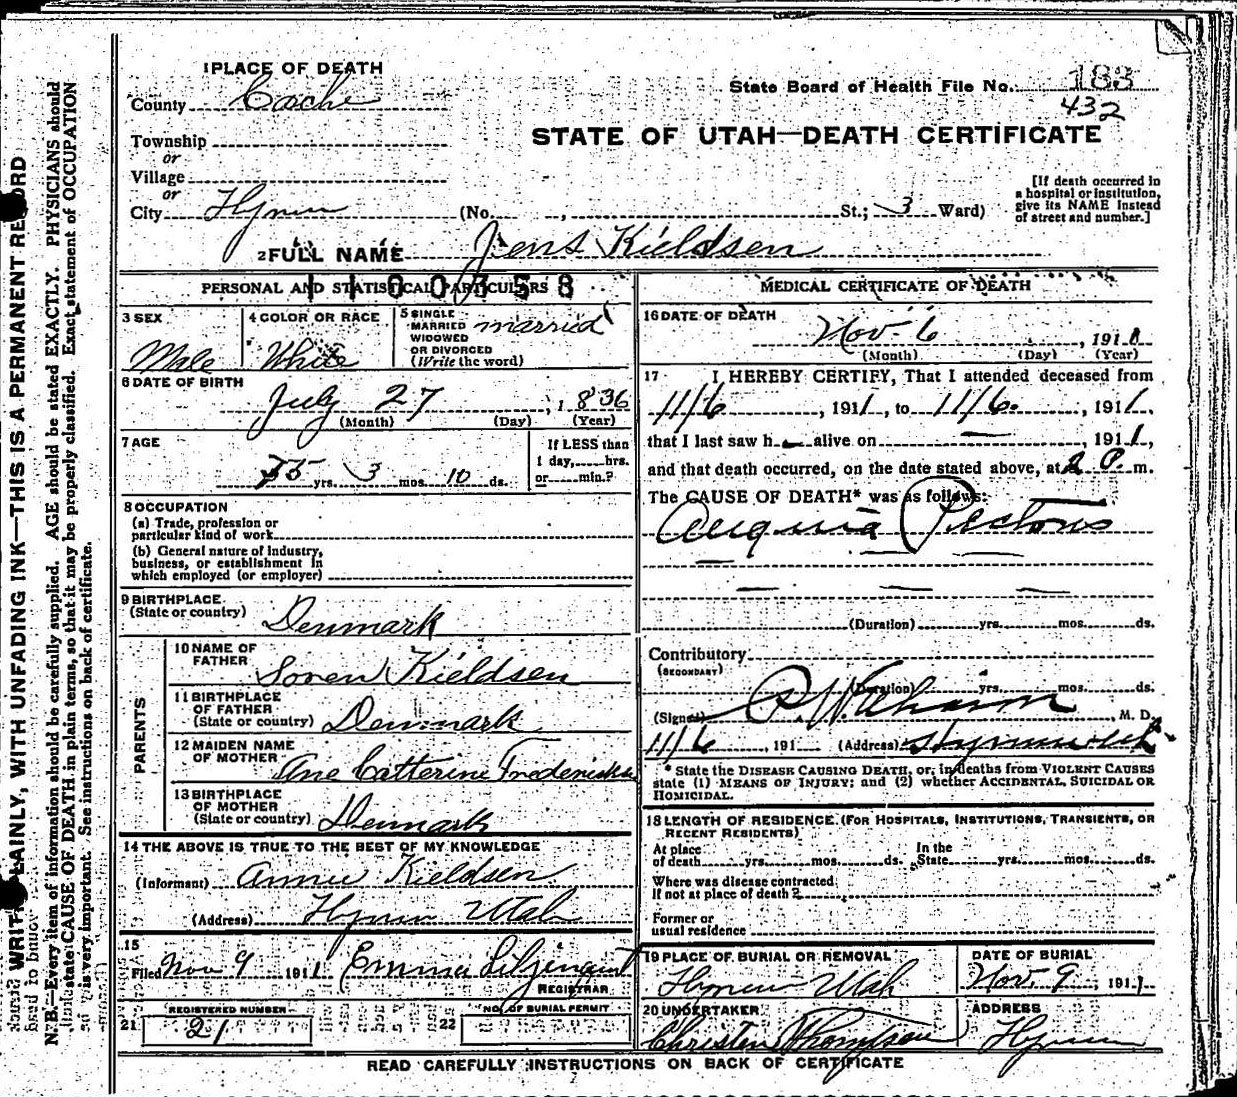 1 PLACE OF DEATH
County Cache
State Board of Health File No. 183
432
Township
or
Village
or
City Hyrum
STATE OF UTAH—DEATH CERTIFICATE
(No. , St.; 3 Ward)
[If death occurred in
a hospital or institution,
give its NAME instead
of street and number.]
2 FULL NAME Jens Kieldsen
1100358
PERSONAL AND STATISTICAL PARTICULARS
3 SEX
Male
4 COLOR OR RACE
White
5 SINGLE
MARRIED
WIDOWED
OR DIVORCED
(Write the word)
married
6 DATE OF BIRTH
July 27, 1836
(Month) (Day) (Year)
7 AGE
yrs. 3 mos. 10 ds.
If LESS than
1 day, hrs.
or min.?
8 OCCUPATION
(a) Trade, profession or
particular kind of work
(b) General nature of industry,
business, or establishment in
which employed (or employer)
9 BIRTHPLACE
(State or country) Denmark
PARENTS
10 NAME OF
FATHER Soren Kieldsen
11 BIRTHPLACE
OF FATHER
(State or country) Denmark
12 MAIDEN NAME
OF MOTHER Ane Catterine
13 BIRTHPLACE
OF MOTHER
(State or country) Denmark
14 THE ABOVE IS TRUE TO THE BEST OF MY KNOWLEDGE
(Informant) Annie Kieldsen
(Address) Hyrum Utah
15
Filed Nov 9 1911 Emma
REGISTRAR
REGISTERED NUMBER
21 21
NO. OF BURIAL PERMIT
22
MEDICAL CERTIFICATE OF DEATH
16 DATE OF DEATH
Nov 6, 1911
(Month) (Day) (Year)
17 I HEREBY CERTIFY, That I attended deceased from
11/6, 1911, to 11/6, 1911,
that I last saw h— alive on —, 1911,
and that death occurred, on the date stated above, at 2 P. m.
The CAUSE OF DEATH* was as follows:
Angina Pectoris
(Duration) yrs. mos. ds.
Contributory
(SECONDARY)
(Duration) yrs. mos. ds.
(Signed) , M. D.
11/6, 191 (Address)
* State the DISEASE CAUSING DEATH, or, in deaths from VIOLENT CAUSES
state (1) MEANS OF INJURY; and (2) whether ACCIDENTAL, SUICIDAL OR
HOMICIDAL.
18 LENGTH OF RESIDENCE. (FOR HOSPITALS, INSTITUTIONS, TRANSIENTS, OR
RECENT RESIDENTS)
At place
of death yrs. mos. ds. In the
State yrs. mos. ds.
Where was disease contracted
If not at place of death?
Former or
usual residence
19 PLACE OF BURIAL OR REMOVAL
Hyrum Utah
DATE OF BURIAL
Nov. 9, 1911
20 UNDERTAKER
Christen Thomsen
ADDRESS
Hyrum
READ CAREFULLY INSTRUCTIONS ON BACK OF CERTIFICATE
WRITE PLAINLY, WITH UNFADING INK—THIS IS A PERMANENT RECORD
N. B.—Every item of information should be carefully supplied. AGE should be stated EXACTLY. PHYSICIANS should
state CAUSE OF DEATH in plain terms, so that it may be properly classified. Exact statement of OCCUPATION
is very important. See instructions on back of certificate.